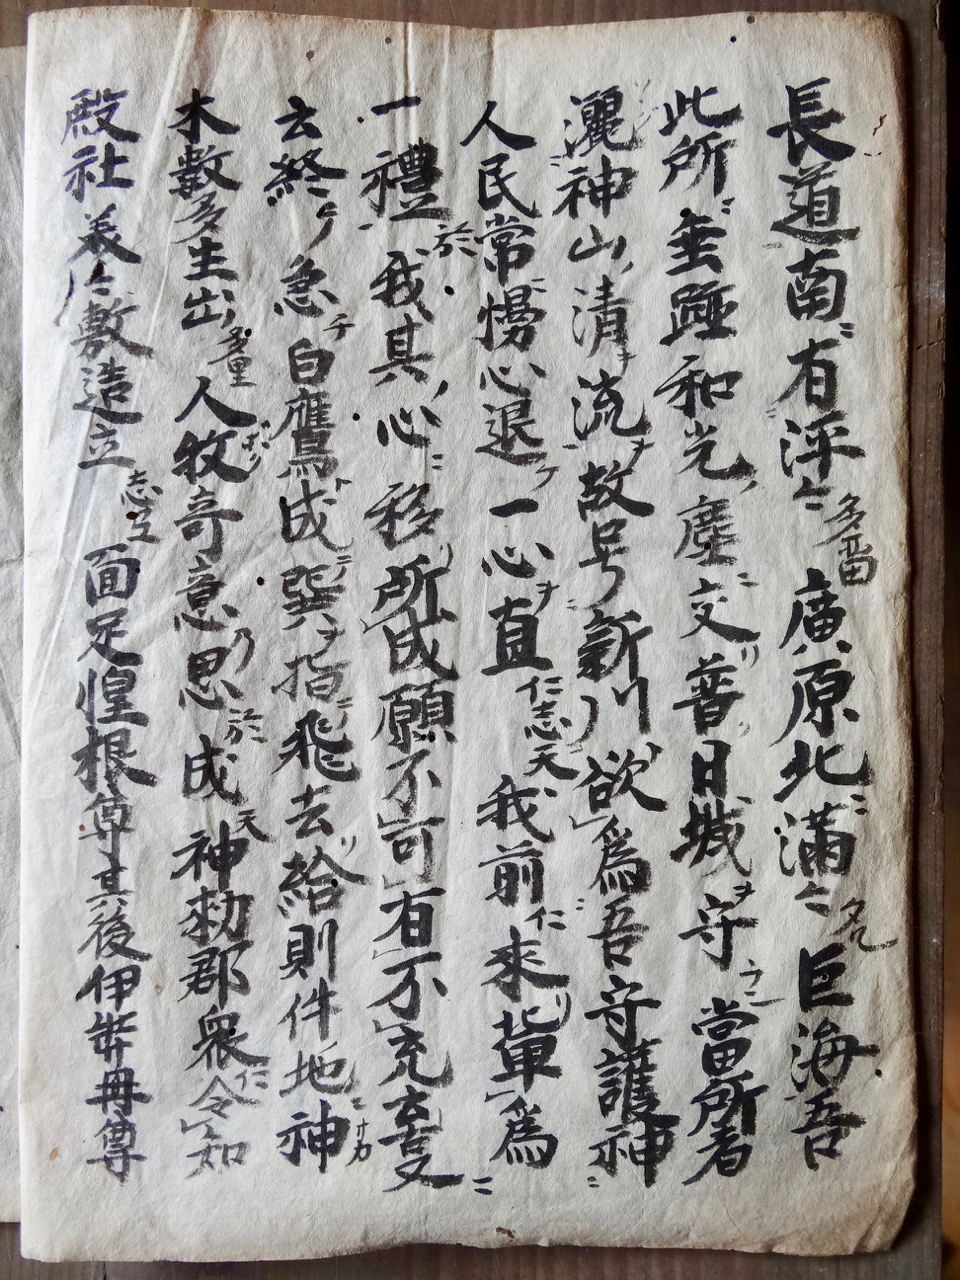 長道南ニ有泙々多畨廣原北ニ滿々タル巨海吾
此所ニ垂跡和光ノ塵ニ交リ普ク日域ヲ守ラン當所者
灑神山清キ流ヲ故ニ号新川欲為吾守護神
人民常ニ慢心退ケ一心ヲ直仁志天我前仁來ル輩ニ為
一禮於我其心ニ移ノ所成願不可有不充
去終リ急チ白鷹ト成ニ巽ヲ指ニ飛去リ給則件地ニ神
木數多生出多里人牧奇意乃思於成天神勅郡衆仁令知
殿社美々敷造立志玉面足惶根尊其後伊弉冊尊